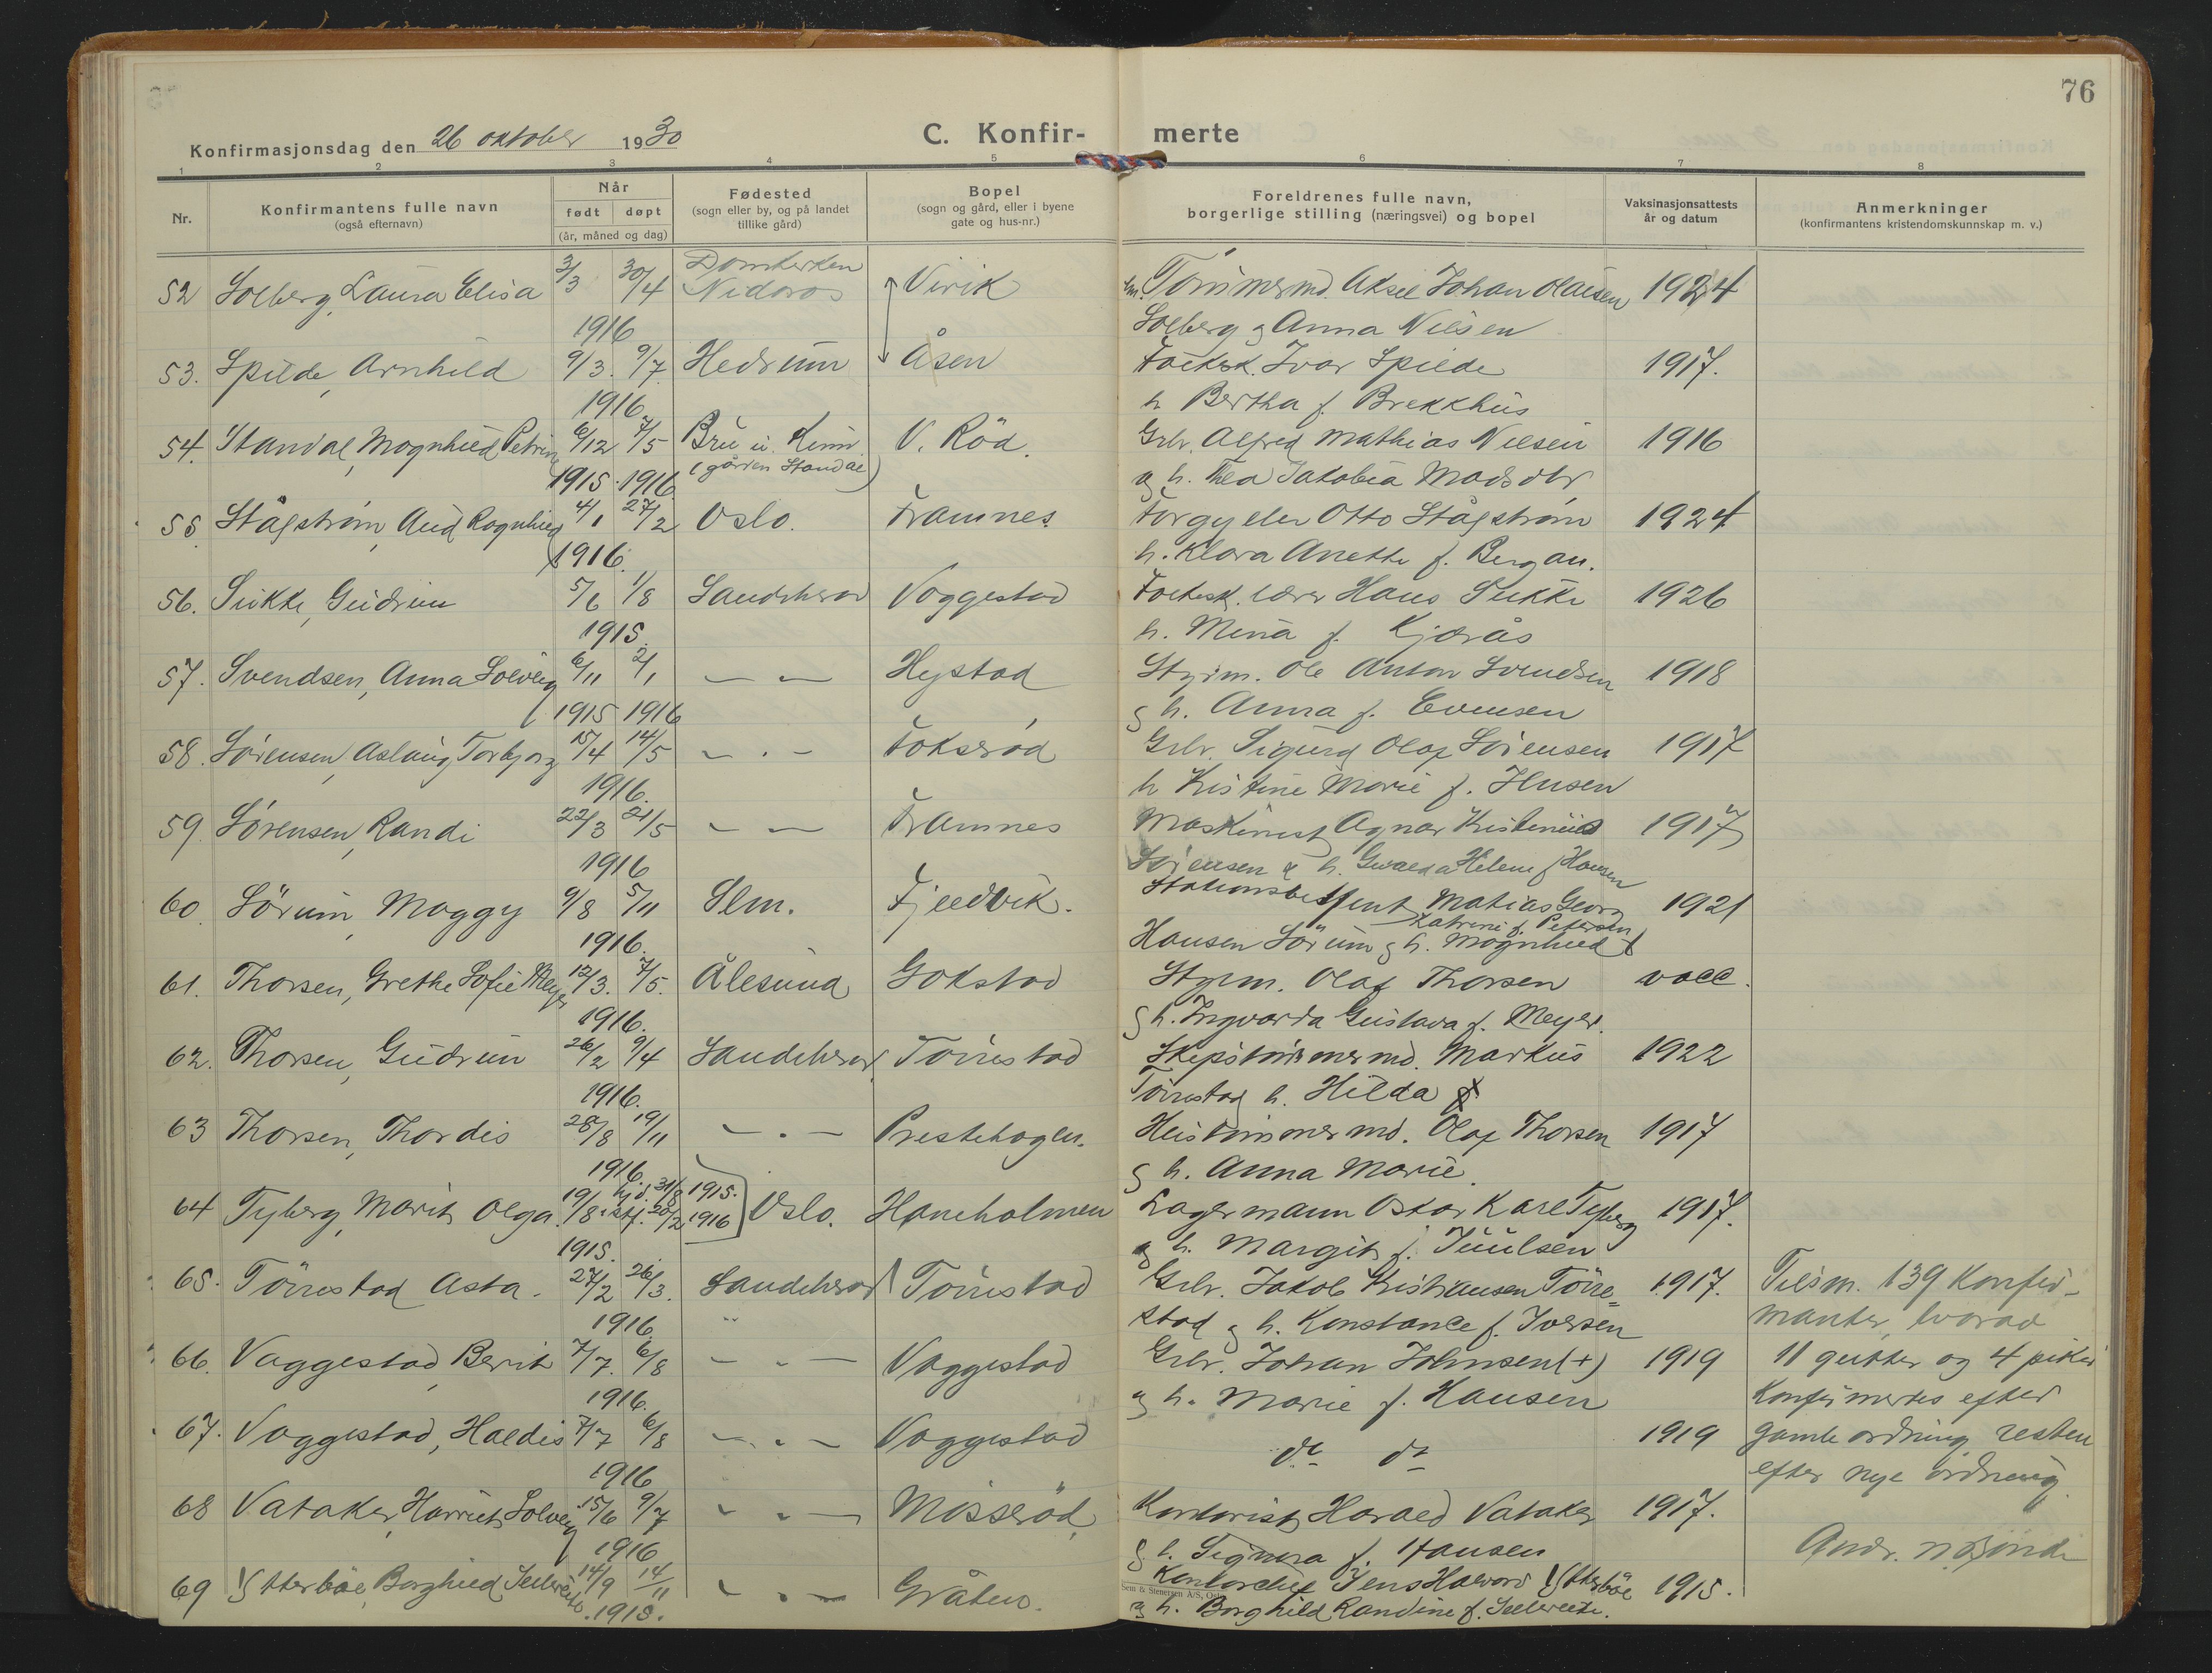 76
Konfirmasjonsdag den 26 oktober 1930
C. Konfir- merte
1 2 3 4 5 6 7 8
Nr.
Konfirmantens fulle navn
(også efternavn)
Når
født døpt
(år, måned og dag)
Fødested
(sogn eller by, og på landet
tillike gård)
Bopel
(sogn og gård, eller i byene
gate og hus-nr.)
Foreldrenes fulle navn,
borgerlige stilling (næringsvei) og bopel
Vaksinasjonsattests
år og datum
Anmerkninger
(konfirmantens kristendomskunnskap m. v.)
52 Solberg, Laura Elisa 3/3 30/4 Domkirken Nidaros Virik Tömmermd. Aksel Johan Olaisen 1924
1916 Solberg g Anna Nilsen
53. Spilde, Arnhild 9/3. 9/7 Hedrum Åsen Folksk. Ivar Spilde 1917.
1916 h Bertha f. Brekkhus
54. Standal, Magnhild Petrine 6/12 7/5 Bru i. Kinn V. Röd. Grbr. Alfred Mathias Nilsen 1916
1915 1916 (gården Standal) g h. Thea Jakobia Madsdtr
55. Stålstrøm, Aud Ragnhild 4/1 27/2 Oslo. Framnes Forgylder Otto Stålstrøm 1924
1916. h. Klara Anette f. Bergan.
56. Sukke, Gudrun 5/6 1/8 Sandeherad Vaggestad Folkesk. lærer Hans Sukke 1926
1915. h. Mina f. Kjærås
57. Svendsen, Anna Solveig 6/11 2/1 — — Hystad Styrm. Ole Anton Svendsen 1918
1915 1916 g h. Anna f. Evensen
58. Sörensen, Aslaug Torbjorg 15/4 14/5 — . — Fokserød Grbr. Sigurd Olaf Sörensen 1917
1916. h Kristine Marie f.
59. Sörensen, Randi 22/3 21/5 — — Framnes Maskinist Agnar Kristenius 1917
1916 Sörensen g h. Helene f Hansen
60. Sörum, Maggy 9/8 5/11 Slm. Fjeldvik. Matias Georg 1921
1916. Hansen Sörum g h. Magnhild Katrine f. Petersen
61. Thorsen, Grethe Sofie Meyer 12/3. 7/5. Ålesund Gokstad Styrm. Olaf Thorsen vacc.
1916. g h. Ingvarda Gustava f. Meyer.
62. Thorsen, Gudrun 26/2 9/4 Sandeherad Törrestad Skipstömmermd. Markus 1922
1916. Törrestad h. Hilda
63 Thorsen, Thordis 28/8 19/11 — . — Prestehagen. Hustömmermd. Olaf Thorsen 1917
1916. g h. Anna Marie.
64 Tyberg, Marit Olga. 19/8 hjd. 31/8 1915. st f. 20/2 1916 Oslo. Haneholmen Lagermann Oskar Karl Tyberg 1917.
1915. g h. Margit f. Juulsen
65. Törrestad Asta. 27/2 26/3. Sandeherad Törrestad Grbr. Jakob Kristiansen Törre= 1917.
1916. stad g h. Konstance f. Iversen
66. Vaggestad, Berit 7/7. 6/8 — . — Vaggestad Grbr. Johan Johnsen (+) 1919
1916. g h. Marie f. Hansen
67. Vaggestad, Haldis 7/7 6/8 — . — Vaggestad do do 1919
1916
68 Vataker, Harriet Solveig 15/6 9/7 — . — Missröd, Kontorist Harald Vataker 1917.
1916 g h. Signora f. Hansen
69 Ytterböe, Borghild Sellevoeth 14/9 14/11 — . — Gråten. Kontorchef Jens Halvard Ytterböe 1915.
1915. g h. Borghild Randine f.
Tilsm. 139 Konfir-
manter, hvorav
11 gutter og 4 piker
Konfirmertes efter
gamle ordning, resten
efter nye ordning
Sem & Stenersen A/S, Oslo